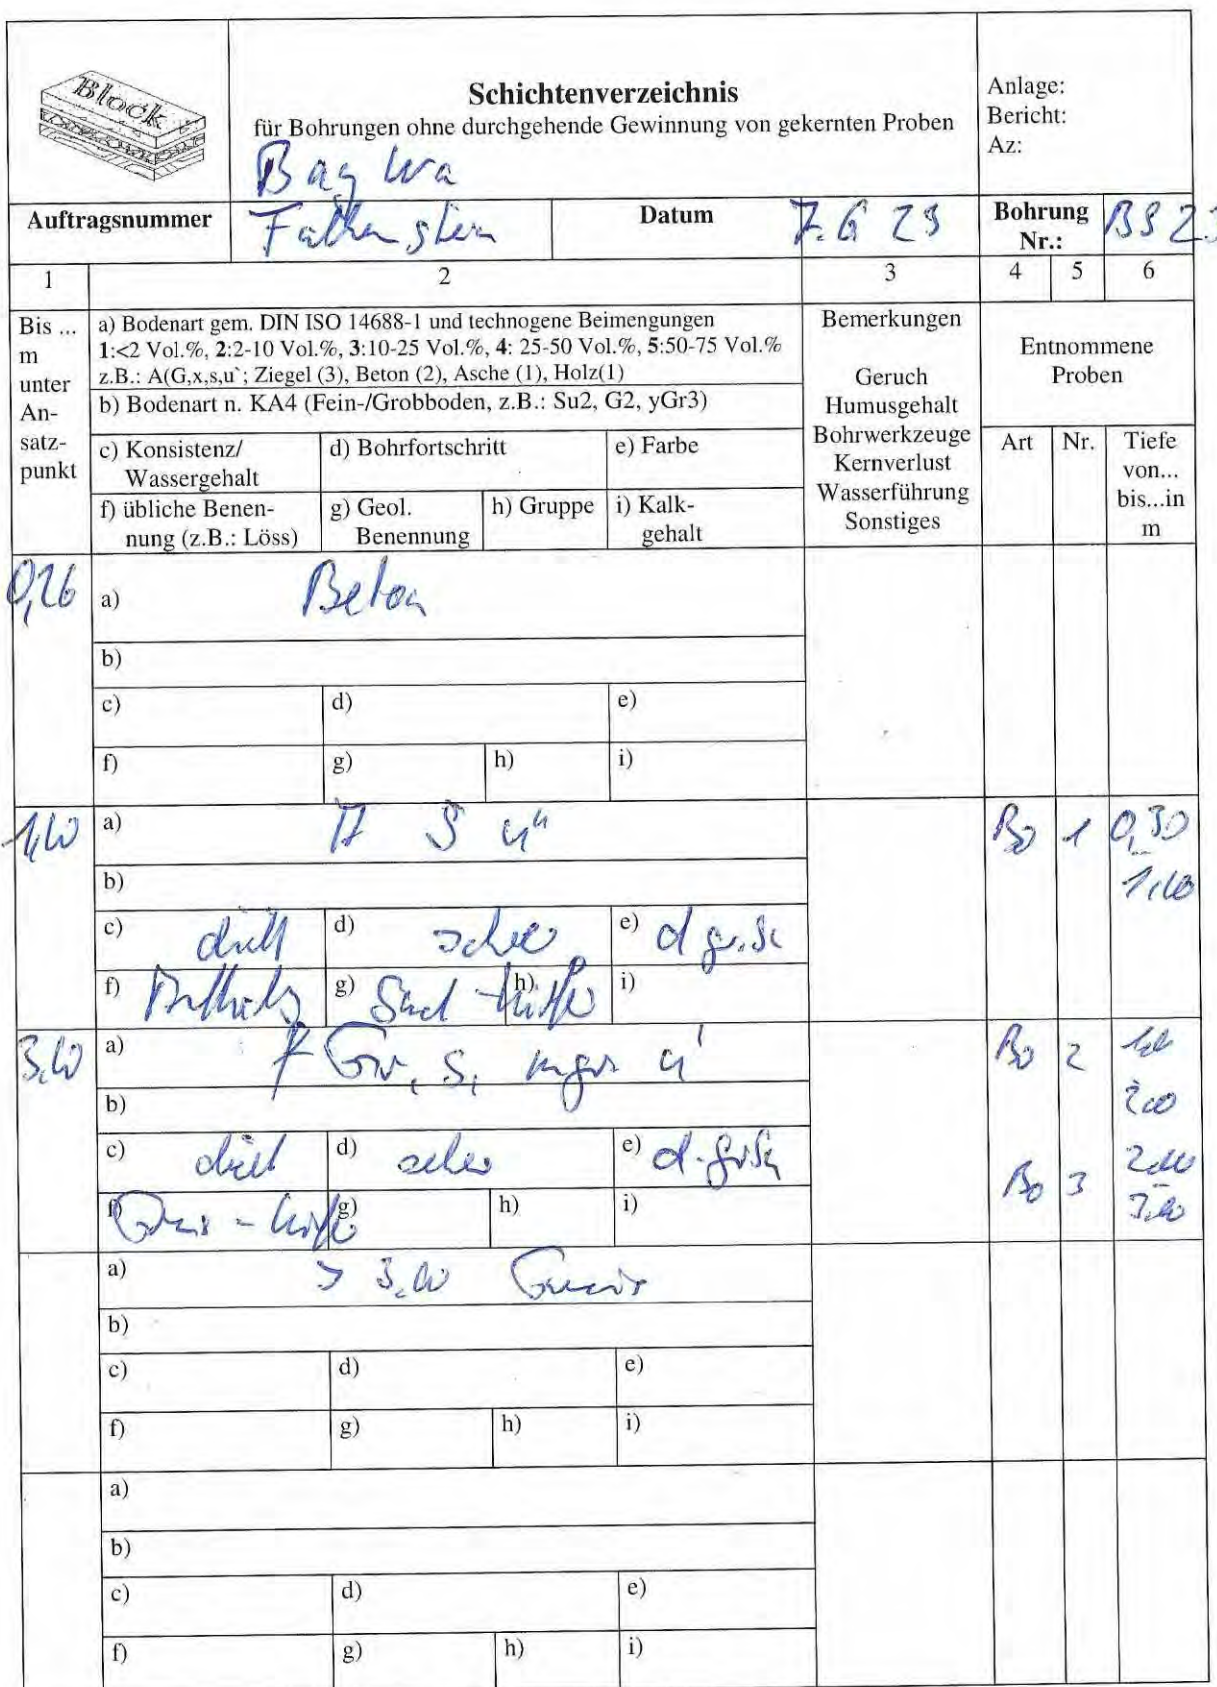 Block
Schichtenverzeichnis
für Bohrungen ohne durchgehende Gewinnung von gekernten Proben
BayWa
Anlage:
Bericht:
Az:
Auftragsnummer
Falkenstein
Datum
7.6 23
Bohrung Nr.:
BS 23
1 2 3 4 5 6
Bis ... m unter An-satz-punkt
a) Bodenart gem. DIN ISO 14688-1 und technogene Beimengungen
1:<2 Vol.%, 2:2-10 Vol.%, 3:10-25 Vol.%, 4: 25-50 Vol.%, 5:50-75 Vol.%
z.B.: A(G,x,s,u`; Ziegel (3), Beton (2), Asche (1), Holz(1)
b) Bodenart n. KA4 (Fein-/Grobboden, z.B.: Su2, G2, yGr3)
c) Konsistenz/ Wassergehalt
d) Bohrfortschritt
e) Farbe
f) übliche Benen-nung (z.B.: Löss)
g) Geol. Benennung
h) Gruppe
i) Kalk-gehalt
Bemerkungen
Geruch
Humusgehalt
Bohrwerkzeuge
Kernverlust
Wasserführung
Sonstiges
Entnommene
Proben
Art
Nr.
Tiefe
von...
bis...in
m
0,26
a) Beton
b)
c) d) e)
f) g) h) i)
1,00
a) A S u"
b)
c) d) e)
f) g) h) i)
Bo 1 0,30
1,00
3,00
a) f Gr, s, mgr u'
b)
c) d) e)
f) g) h) i)
Bo 2 1,00
2,00
Bo 3 2,00
3,00
a) > 3,00 Gneis
b)
c) d) e)
f) g) h) i)
a)
b)
c) d) e)
f) g) h) i)